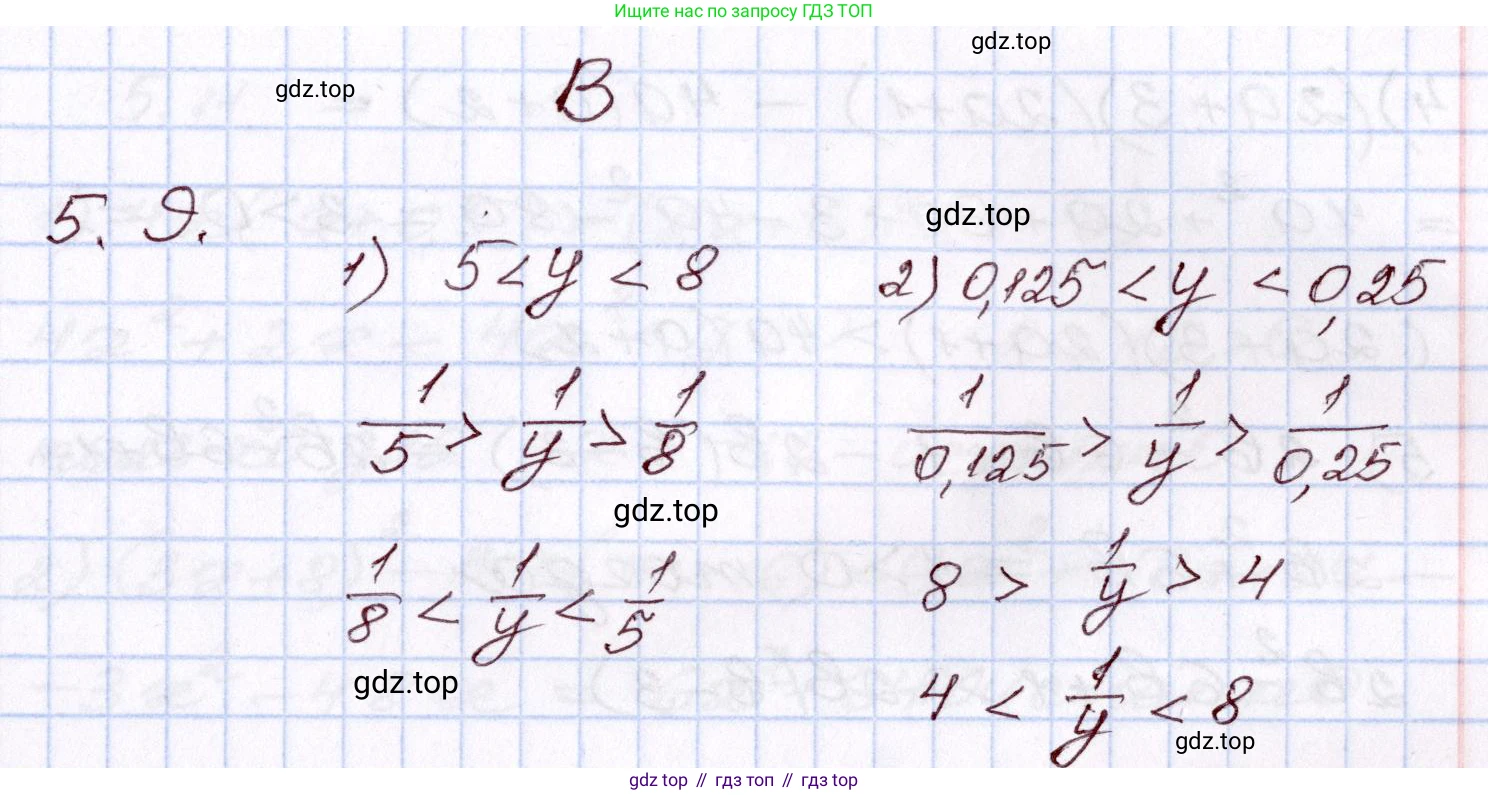 Ищите нас по запросу ГДЗ ТОП
gdz.top
gdz.top
В
5.9.
gdz.top
1) 5 < y < 8
2) 0,125 < y < 0,25
1/5 > 1/y > 1/8
1/0,125 > 1/y > 1/0,25
gdz.top
1/8 < 1/y < 1/5
8 > 1/y > 4
gdz.top
4 < 1/y < 8
gdz.top
gdz top // гдз топ // gdz top